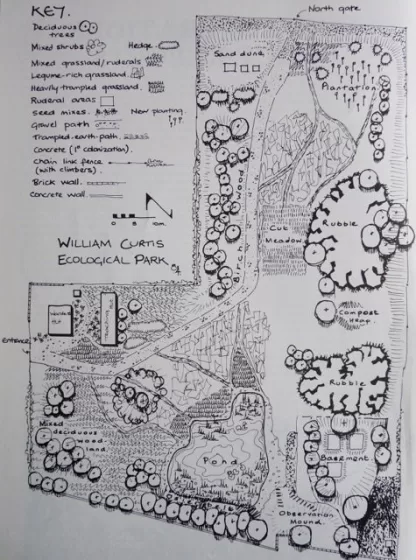 KEY.
Deciduous trees
Mixed shrubs
Hedge
Mixed grassland/ruderals
Legume-rich grassland
Heavily-trampled grassland.
Ruderal areas
Seed mixes.
New planting.
Gravel path
Trampled-earth path.
Concrete (1st colonization).
Chain link fence
(with climbers).
Brick wall.
Concrete wall.
North gate
Sand dune
Plantation
Birch Wood
Cut
Meadow
Rubble
WILLIAM CURTIS
ECOLOGICAL PARK
Compost
Heap.
Entrance
Rubble
Mixed
deciduous
wood-
land.
Pond
Basement
Observation
Mound.